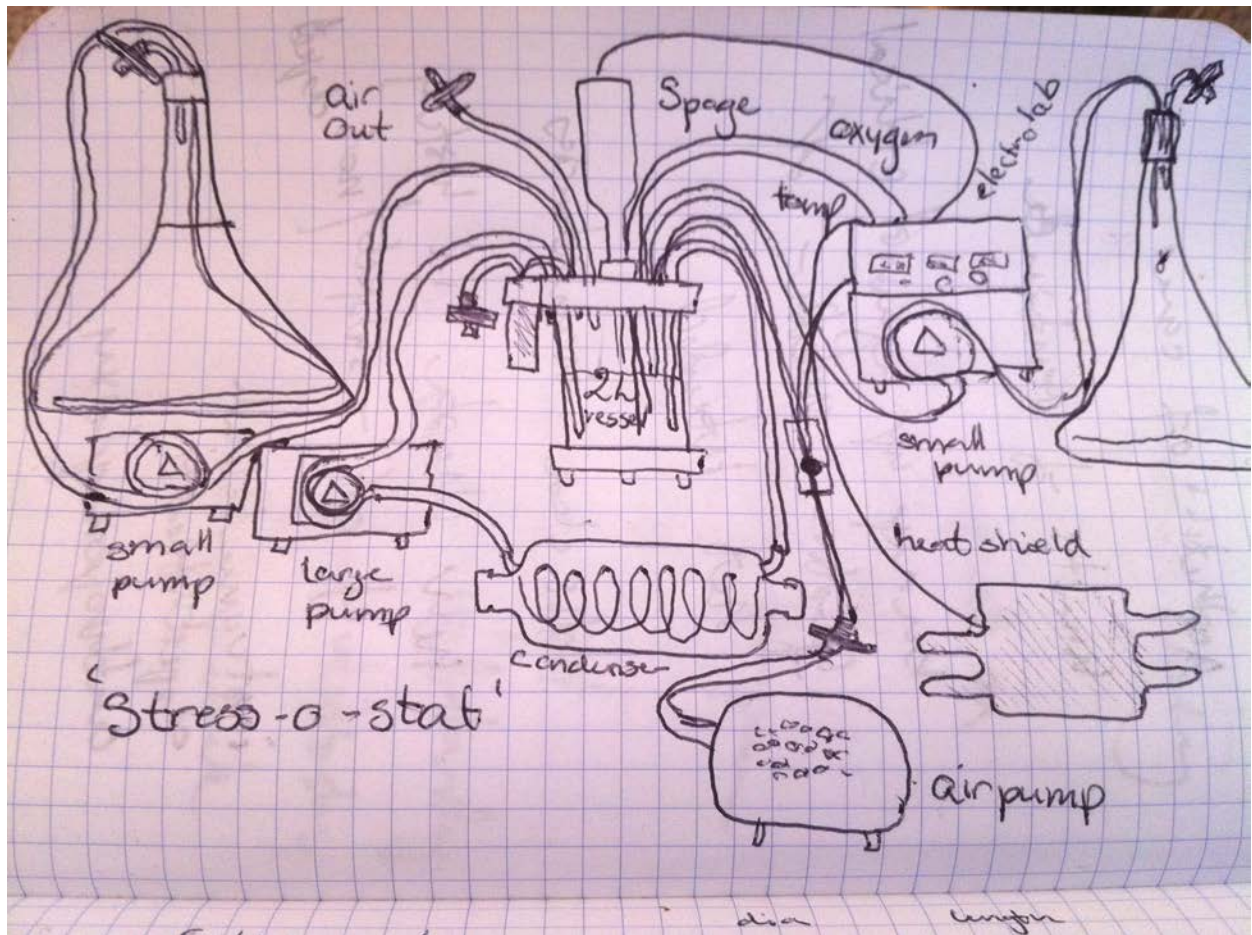 air
out
Spage
oxygen
electrolab
temp
2L
vessel
small
pump
small
pump
large
pump
heat shield
Condenser
'Stress-o-stat'
air pump
dia
length